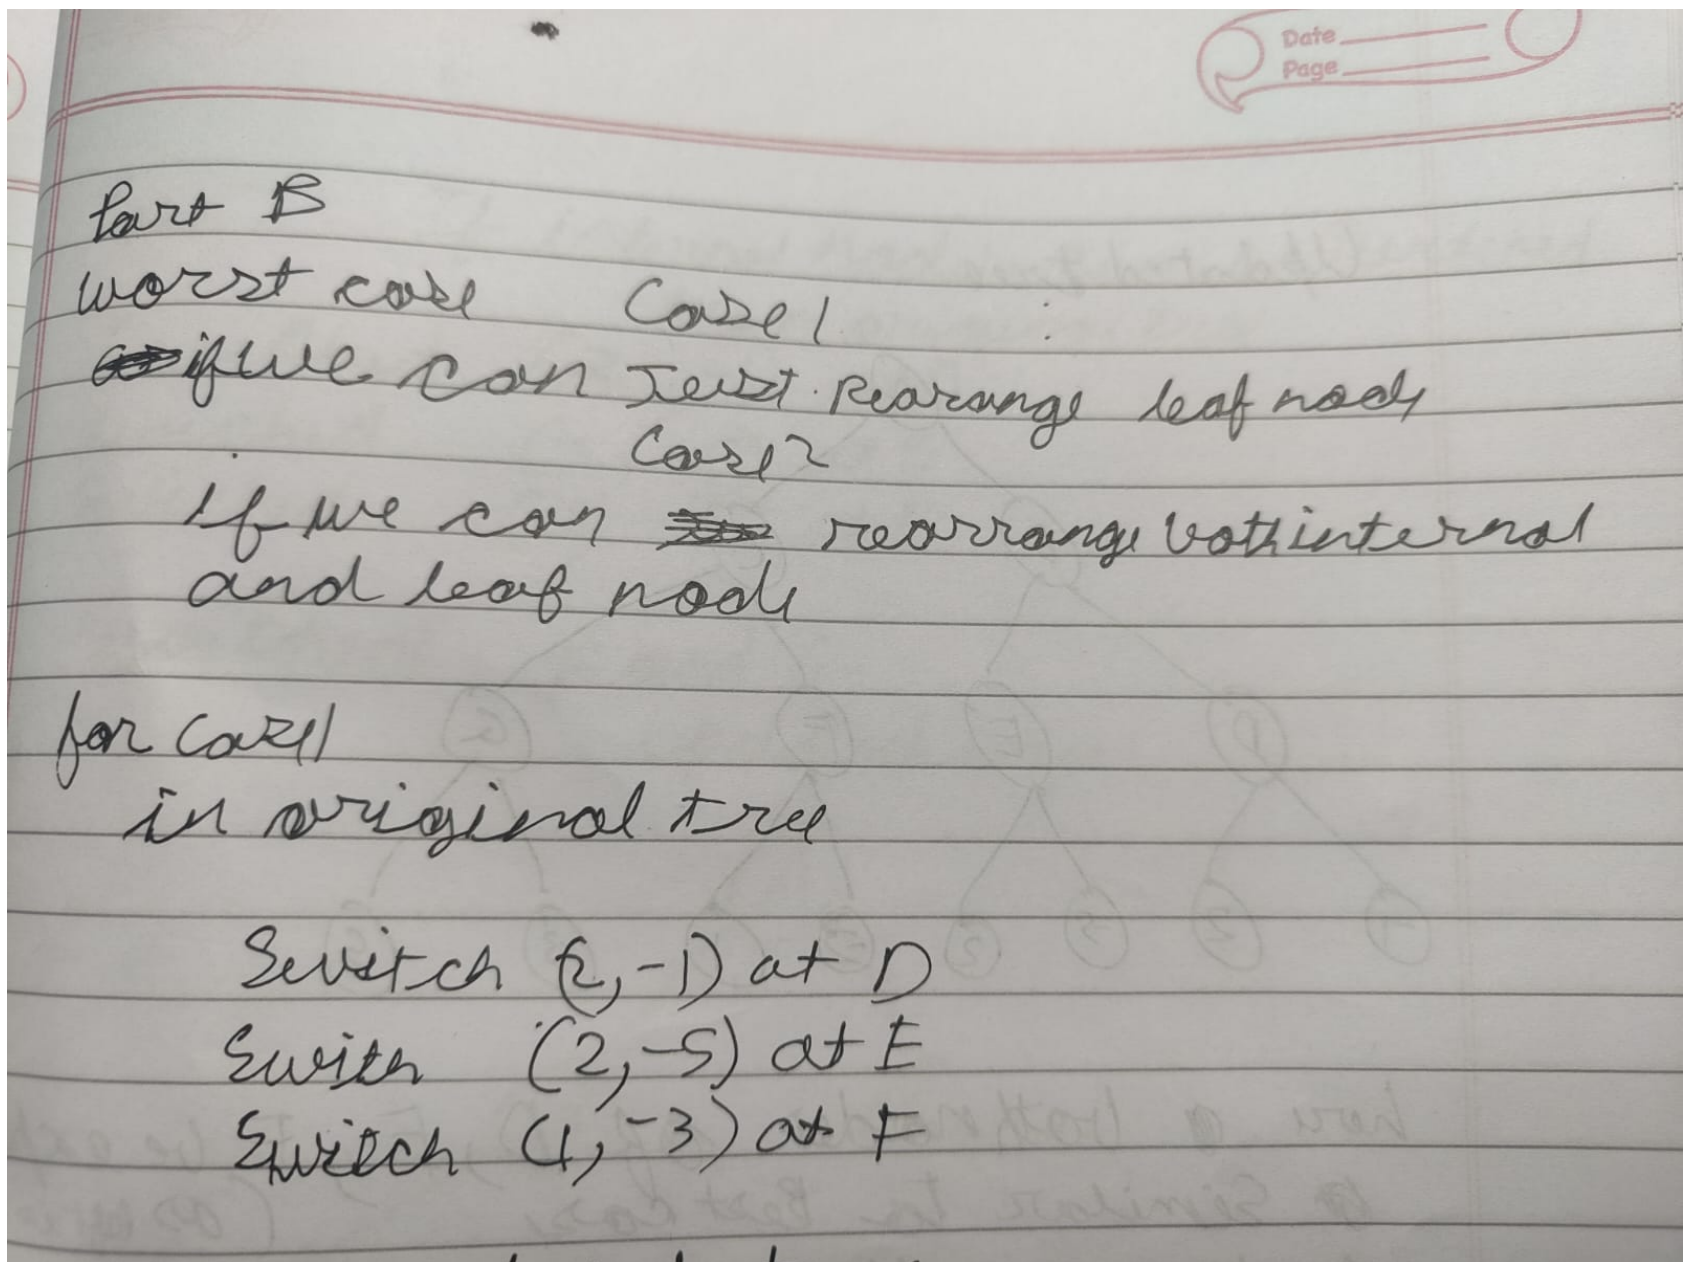 Date
Page
Part B
worst case Case 1
if we can Just Rearange leaf node
Case 2
if we can rearrange both internal
and leaf node
for case 1
in original tree
Switch (2,-1) at D
Swith (2,-5) at E
Switch (1,-3) at F